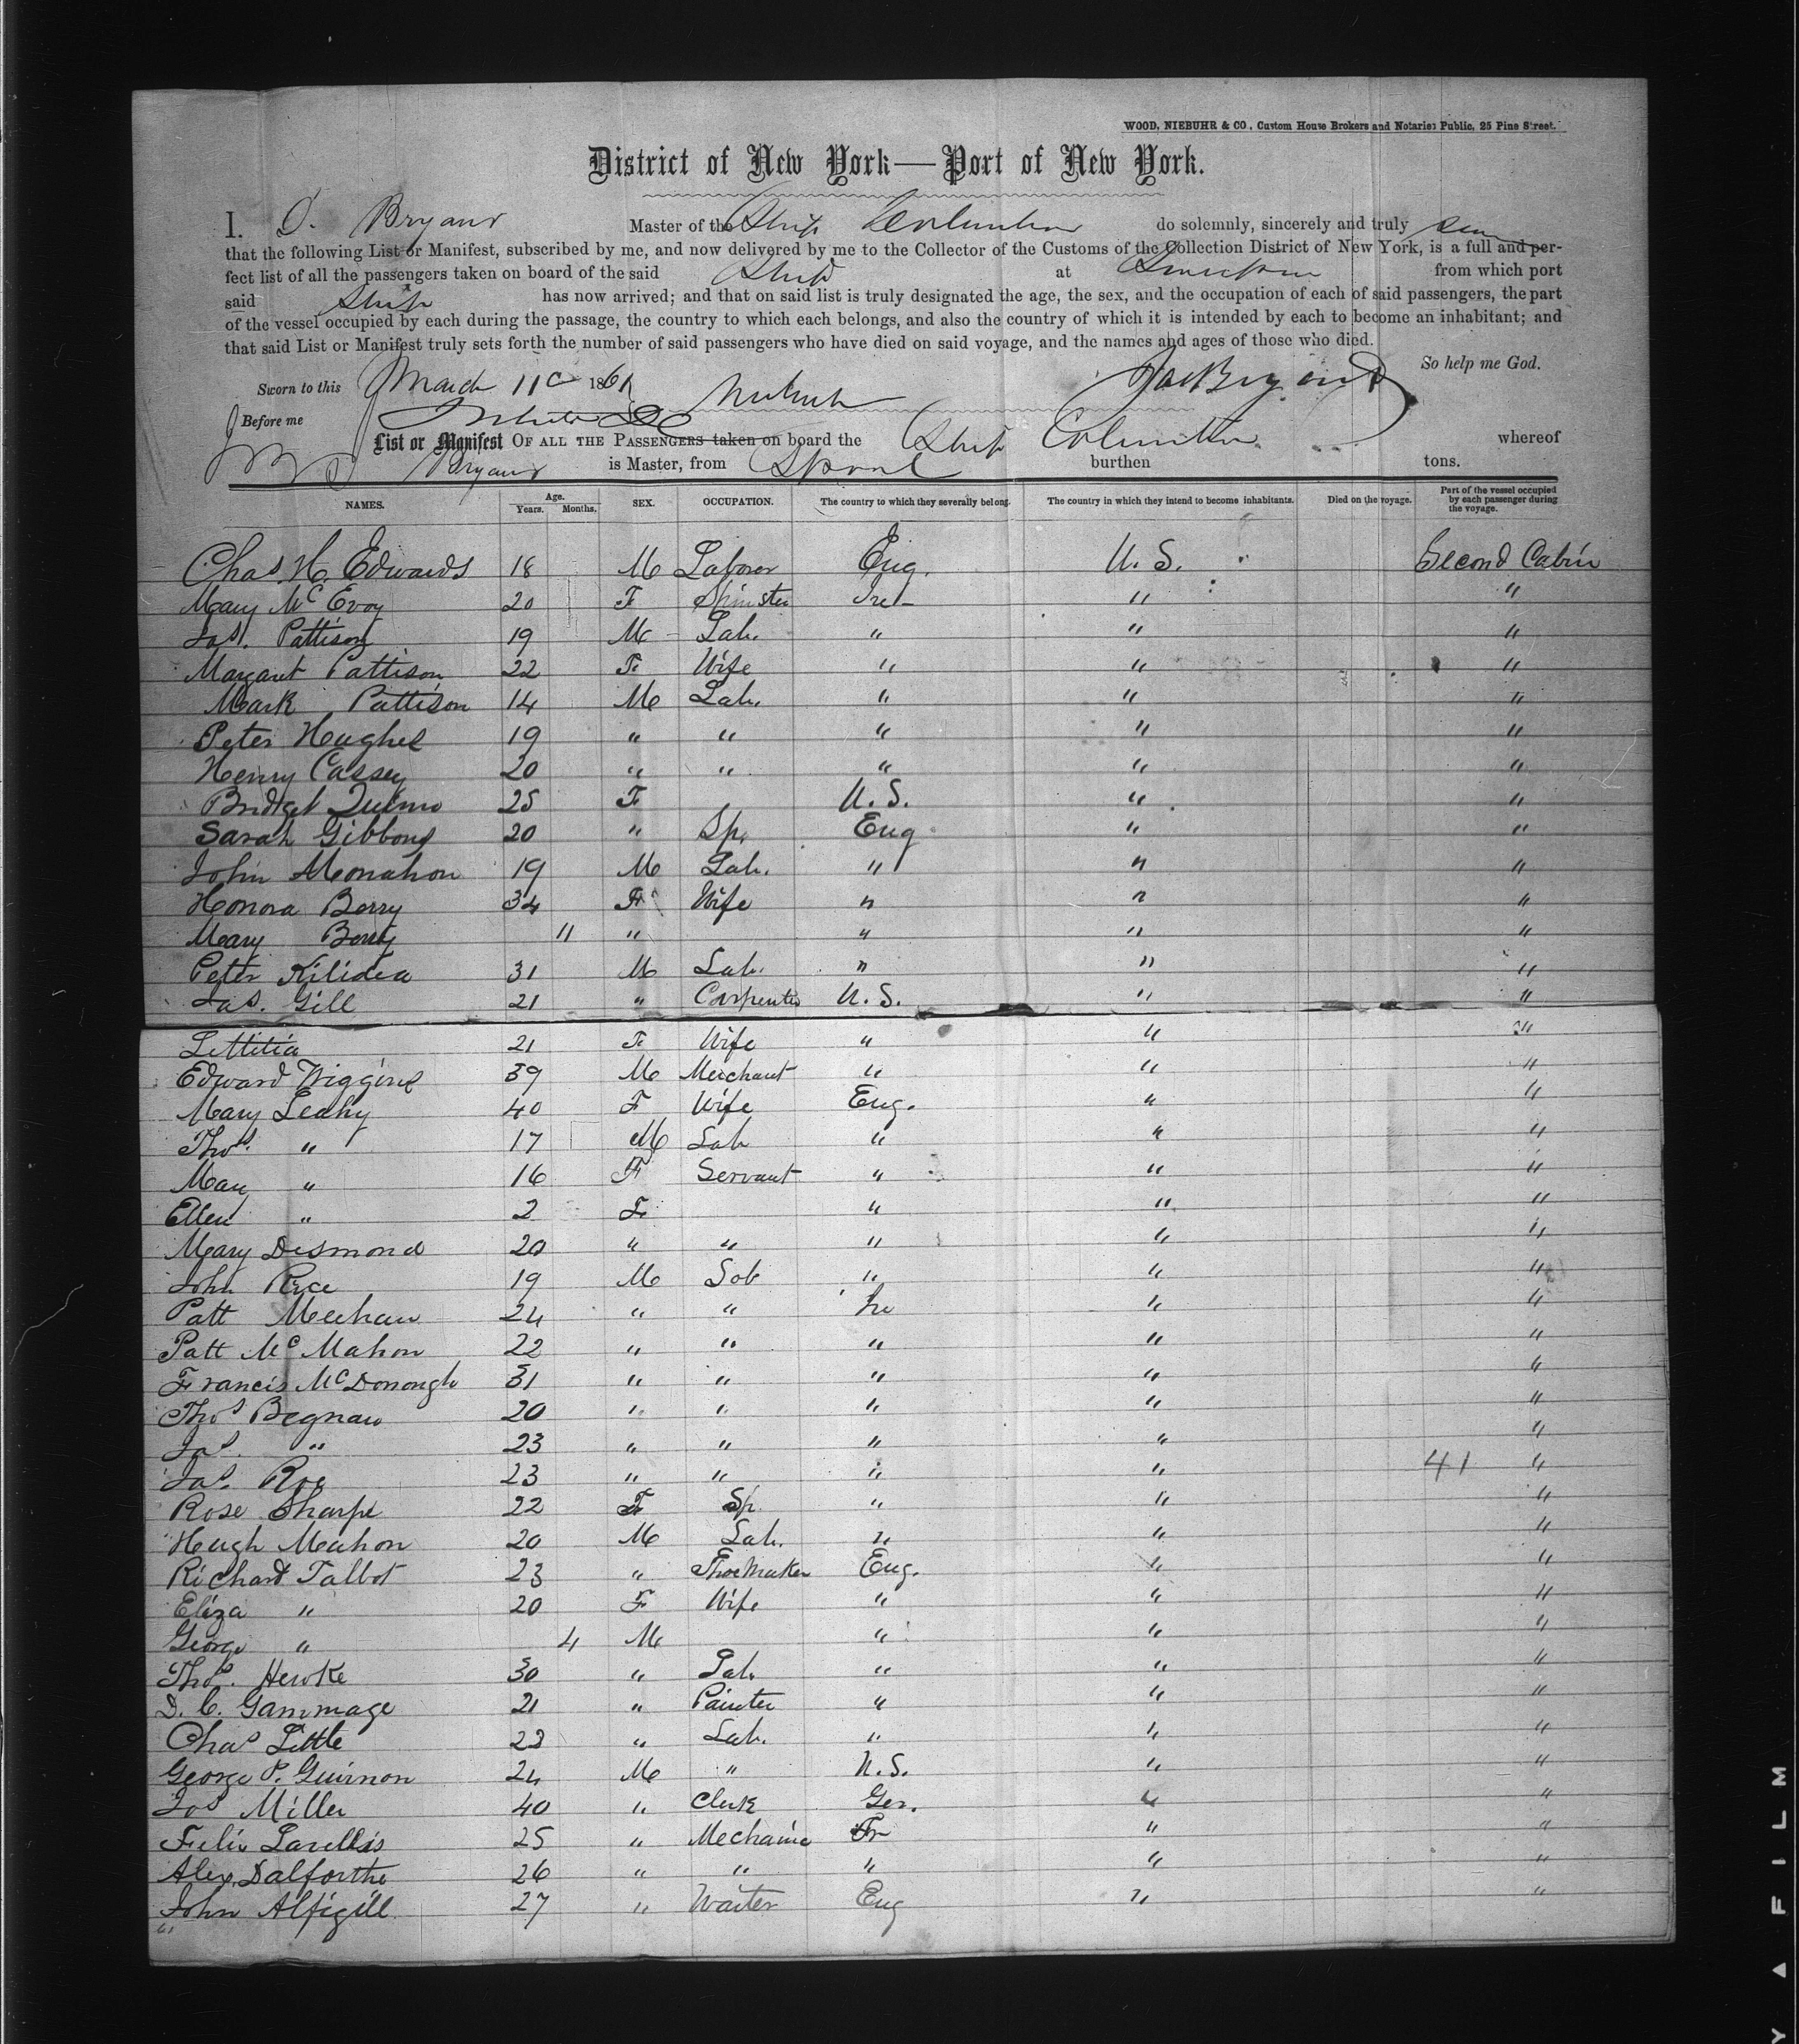 WOOD, NIEBUHR & CO, Custom House Brokers and Notaries Public, 25 Pine Street.
District of New York—Port of New York.
I. D. Bryant Master of the Ship Columbia do solemnly, sincerely and truly
that the following List or Manifest, subscribed by me, and now delivered by me to the Collector of the Customs of the Collection District of New York, is a full and per-
fect list of all the passengers taken on board of the said Ship at from which port
said Ship has now arrived; and that on said list is truly designated the age, the sex, and the occupation of each of said passengers, the part
of the vessel occupied by each during the passage, the country to which each belongs, and also the country of which it is intended by each to become an inhabitant; and
that said List or Manifest truly sets forth the number of said passengers who have died on said voyage, and the names and ages of those who died.
So help me God.
Sworn to this March 11 186
Before me
List or Manifest OF ALL THE PASSENGERS taken on board the Ship Columbia whereof
Bryant is Master, from Lpool burthen tons.
NAMES. Age. Years. Months. SEX. OCCUPATION. The country to which they severally belong. The country in which they intend to become inhabitants. Died on the voyage. Part of the vessel occupied by each passenger during the voyage.
Chas H. Edwards 18 M Laborer Eng. U.S. Second Cabin
Mary McEvoy 20 F Spinster Irel " "
Jas. Pattison 19 M Lab. " " "
Margaret Pattison 22 F Wife " " "
Mark Pattison 14 M Lab. " " "
Peter Hughes 19 " " " " "
Henry Cassey 20 " " " " "
Bridget Quinn 25 F U.S. " "
Sarah Gibbons 20 " Sp. Eng " "
John Monahon 19 M Lab. " " "
Honora Berry 34 F Wife " " "
Mary Berry 11 " " " "
Peter Kilidea 31 M Lab. " " "
Jas. Gill 21 " Carpenter U.S. " "
Lettitia 21 F Wife " " "
Edward Wiggins 39 M Merchant " " "
Mary Leahy 40 F Wife Eng. " "
Thos. " 17 M Lab " " "
Mary " 16 F Servant " " "
Ellen " 2 F " " "
Mary Desmond 20 " " " " "
John Rice 19 M Lab " " "
Patt Meehan 24 " " Ire " "
Patt McMahon 22 " " " " "
Francis McDonough 31 " " " " "
Thos Begnaw 20 " " " " "
Jas. " 23 " " " " "
Jas. Roe 23 " " " " 41 "
Rose Sharpe 22 F Sp " " "
Hugh Mahon 20 M Lab. " " "
Richard Talbot 23 " Shoemaker Eng. " "
Eliza " 20 F Wife " " "
George " 4 M " " "
Thos. Hewke 30 " Lab. " " "
D. C. Gammage 21 " Painter " " "
Chas Little 23 " Lab. " " "
George P. Guinon 24 M " U.S. " "
Jos Miller 40 " Clerk Ger. " "
Felix Lavellis 25 " Mechanic Fr " "
Alex. Dalforthe 26 " " " " "
John Alfigill 27 " Waiter Eng " "
"
Y A FILM